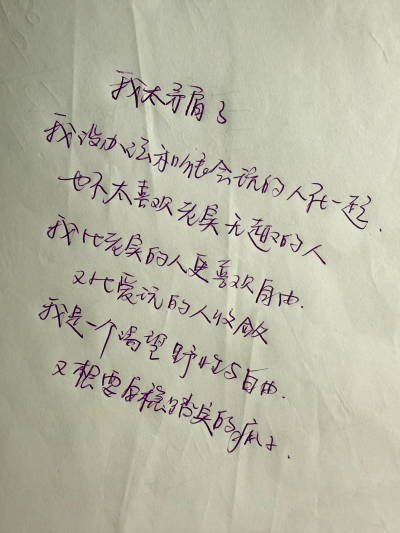 我太矛盾了
我没办法和能会玩的人在一起.
也不太喜欢老实无趣的人
我比老实的人更喜欢自由.
又比爱玩的人收敛
我是一个渴望野性与自由.
又想要安稳踏实的疯子.